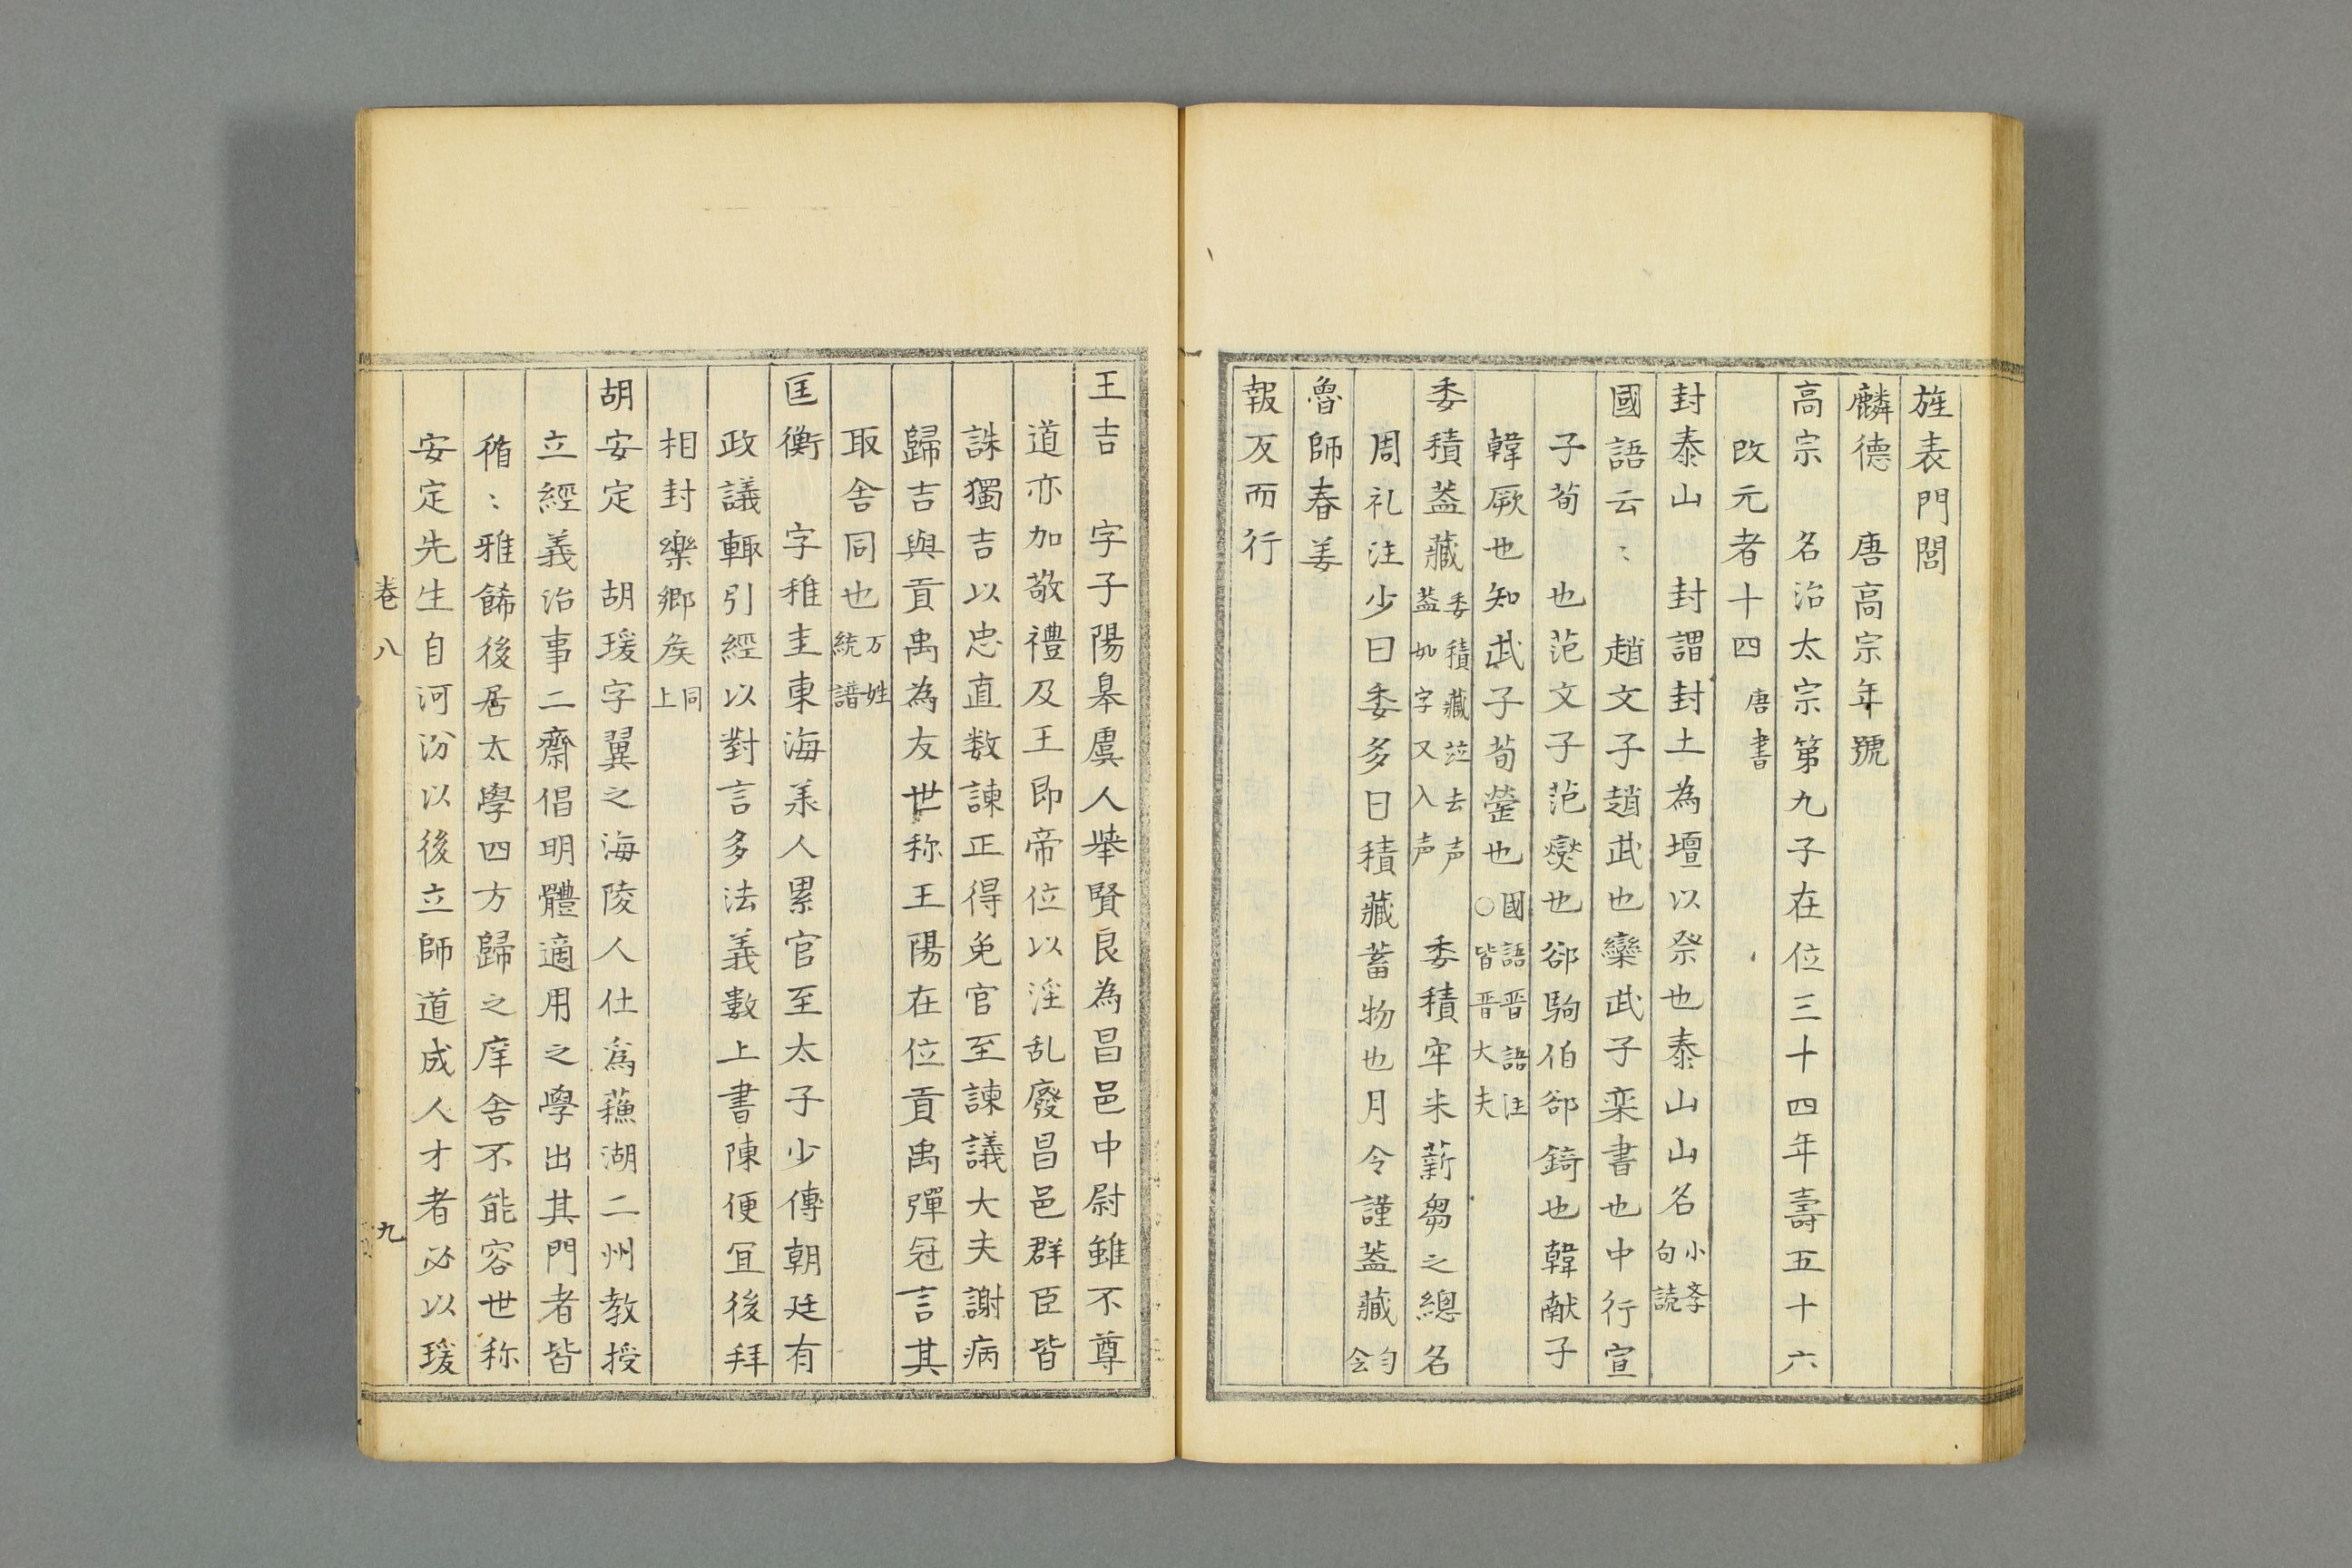 旌表門閭
麟德　唐高宗年號
高宗　名治太宗第九子在位三十四年壽五十六
改元者十四 唐書
封泰山　封謂封土為壇以祭也泰山山名 小孝句読
國語云〻　趙文子趙武也欒武子栾書也中行宣
子荀　也范文子范燮也郤駒伯郤錡也韓献子
韓厥也知武子荀罃也 國語晋語注○皆晋大夫
委積蓋藏 委積藏並去声蓋如字又入声　委積牢米薪芻之總名
周礼注少曰委多曰積藏蓄物也月令謹蓋藏 勻会
魯師春姜
報反而行
王吉　字子陽皋虞人舉賢良為昌邑中尉雖不尊
道亦加敬禮及王即帝位以淫乱廢昌邑群臣皆
誅獨吉以忠直数諫正得免官至諫議大夫謝病
歸吉與貢禹為友世称王陽在位貢禹彈冠言其
取舍同也 万姓統譜
匡衡　字稚圭東海羕人累官至太子少傅朝廷有
政議輙引經以對言多法義數上書陳便冝後拜
相封樂郷矦 同上
胡安定　胡瑗字翼之海陵人仕為蘓湖二州教授
立經義治事二齋倡明體適用之學出其門者皆
循〻雅餙後居太學四方歸之庠舍不能容世称
安定先生自河汾以後立師道成人才者必以瑗
卷八
九